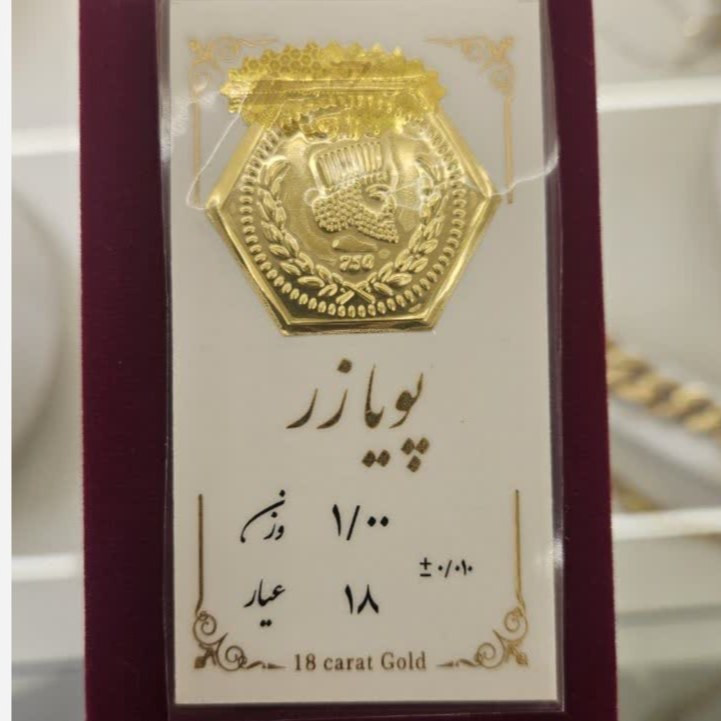 750
پویا زر
وزن ۱/۰۰
±۰/۰۱۰
عیار ۱۸
18 carat Gold